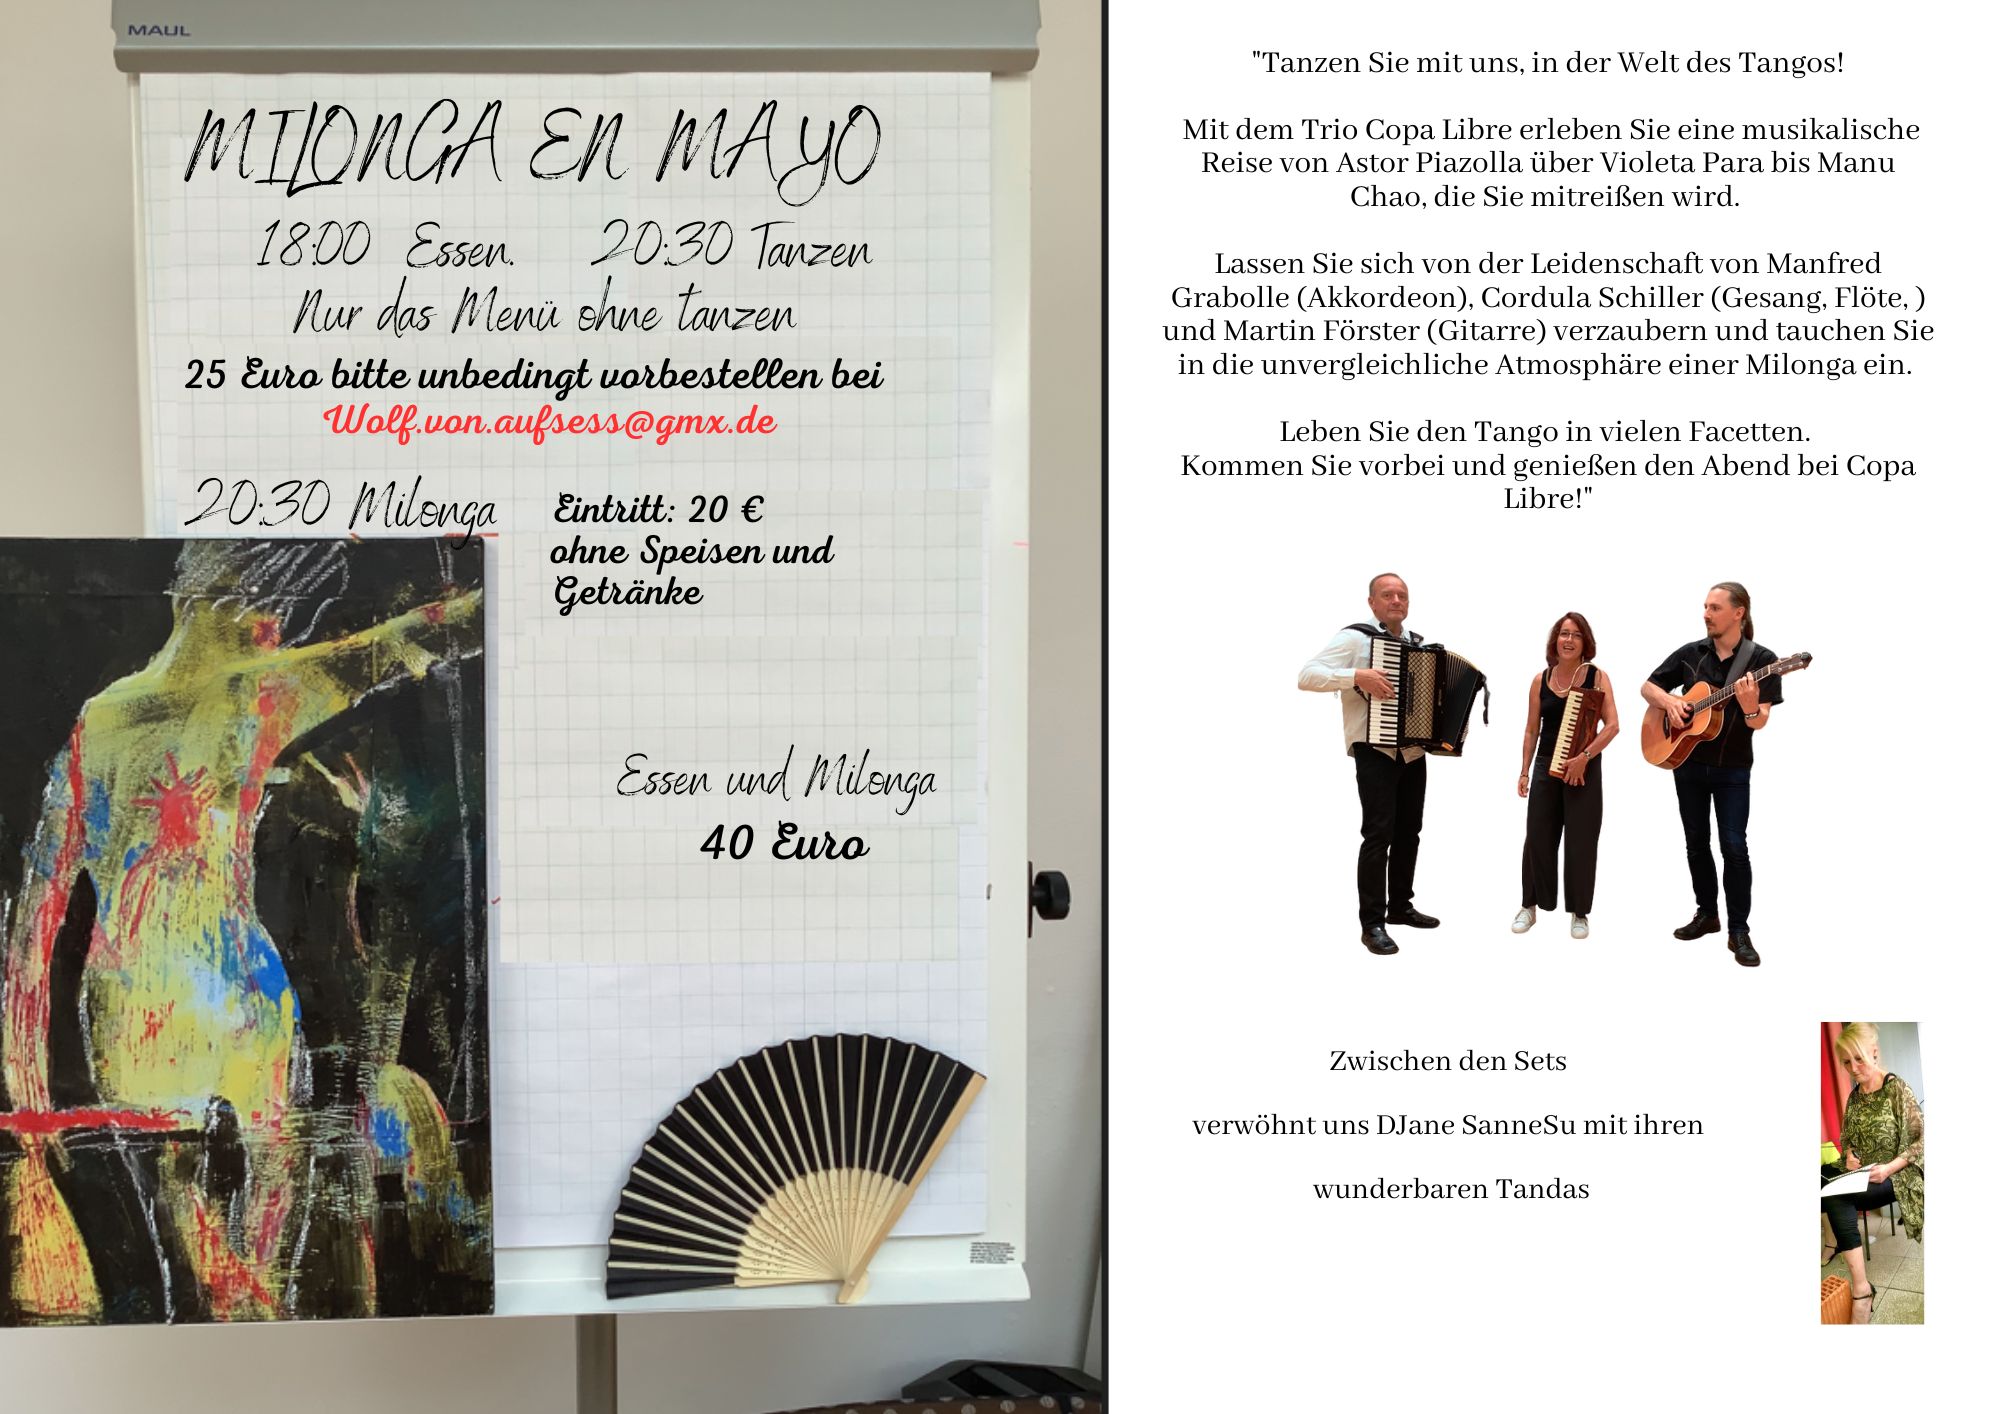 MAUL
MILONGA EN MAYO
18:00 Essen. 20:30 Tanzen
Nur das Menü ohne tanzen
25 Euro bitte unbedingt vorbestellen bei
Wolf.von.aufsess@gmx.de
20:30 Milonga
Eintritt: 20 €
ohne Speisen und
Getränke
Essen und Milonga
40 Euro
"Tanzen Sie mit uns, in der Welt des Tangos!
Mit dem Trio Copa Libre erleben Sie eine musikalische
Reise von Astor Piazolla über Violeta Para bis Manu
Chao, die Sie mitreißen wird.
Lassen Sie sich von der Leidenschaft von Manfred
Grabolle (Akkordeon), Cordula Schiller (Gesang, Flöte, )
und Martin Förster (Gitarre) verzaubern und tauchen Sie
in die unvergleichliche Atmosphäre einer Milonga ein.
Leben Sie den Tango in vielen Facetten.
Kommen Sie vorbei und genießen den Abend bei Copa
Libre!"
Zwischen den Sets
verwöhnt uns DJane SanneSu mit ihren
wunderbaren Tandas